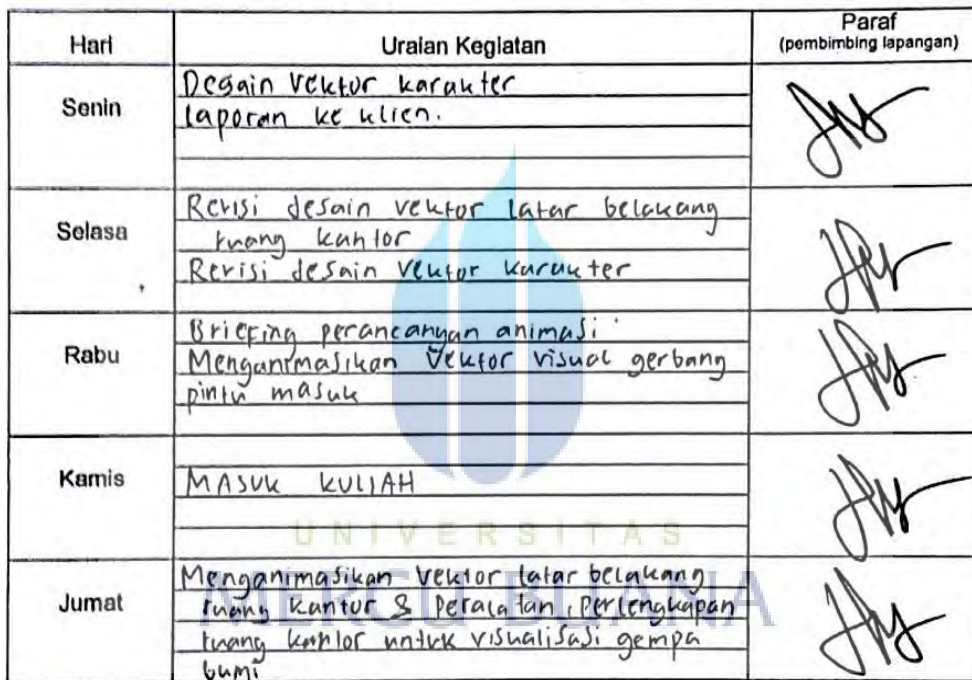 Hari
Uraian Kegiatan
Paraf
(pembimbing lapangan)
Senin
Desain vektor karakter
laporan ke klien.
Selasa
Revisi desain vektor latar belakang
ruang kantor
Revisi desain vektor karakter
Rabu
Briefing perancangan animasi
Menganimasikan vektor visual gerbang
pintu masuk
Kamis
MASUK KULIAH
UNIVERSITAS
MERCU BUANA
Jumat
Menganimasikan vektor latar belakang
ruang kantor & peralatan, perlengkapan
ruang kantor untuk visualisasi gempa
bumi